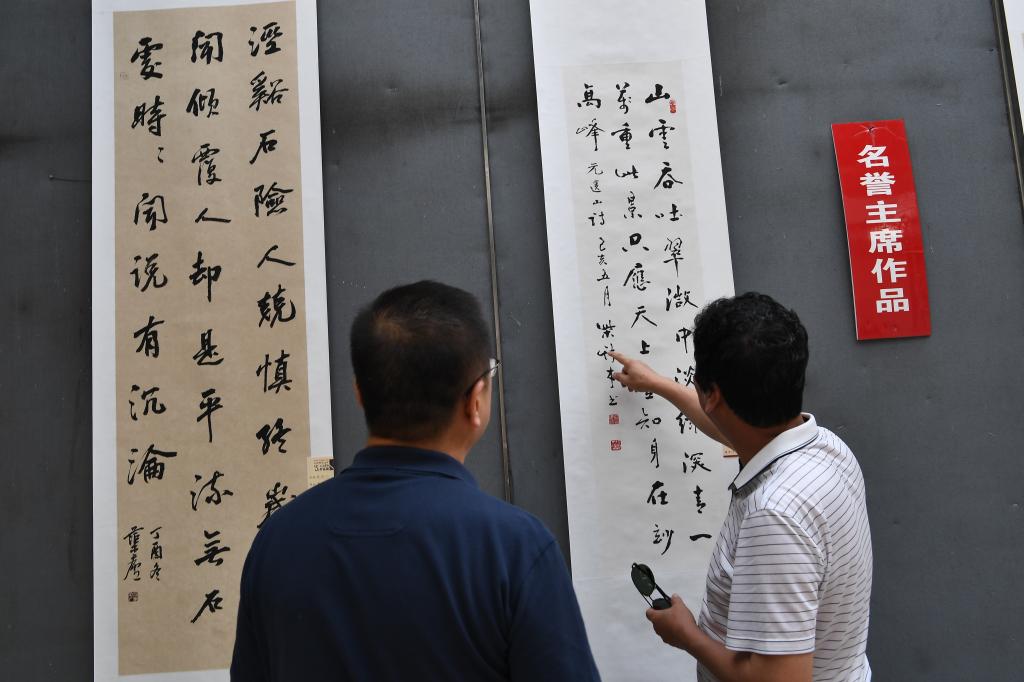 名誉主席作品
山雲吞吐翠微中淡綠深青一
萬重此景只應天上豈知身在妙
高峰 元遺山詩 己亥五月
涇谿石險人兢慎終歲
聞傾覆人却是平流無石
處時〻聞说有沉淪
丁酉冬